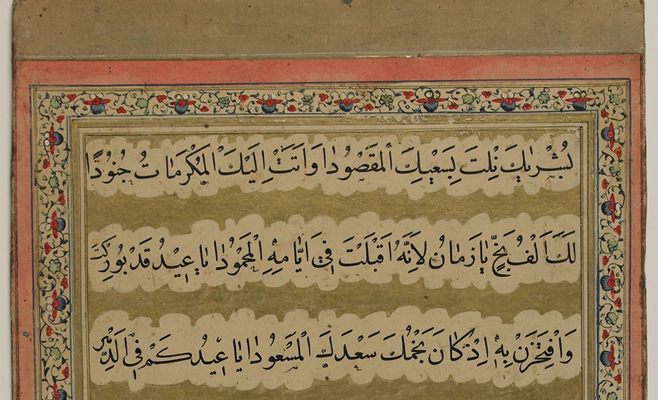 بُشْرَيكَ نِلْتَ بِسَعْيِكَ الْمَقْصُودَا وَاَتَتْ اِلَيْكَ الْمَكْرُمَاتُ جُنُودًا
لَكَ اَلْفُ بَخٍّ يَا زَمَانُ لِاَنَّهُ اَقْبَلْتَ فِي اَيَّامِهِ الْمَحْمُودَا يَا عِيدُ قَدْ بُورِكْتَ
وَافْتَخِرَنْ بِهِ اِذْ كَانَ نَجْمُكَ سَعْدَكَ الْمَسْعُودَا يَا عِيدُ كَمْ فِي الدَّهْرِ